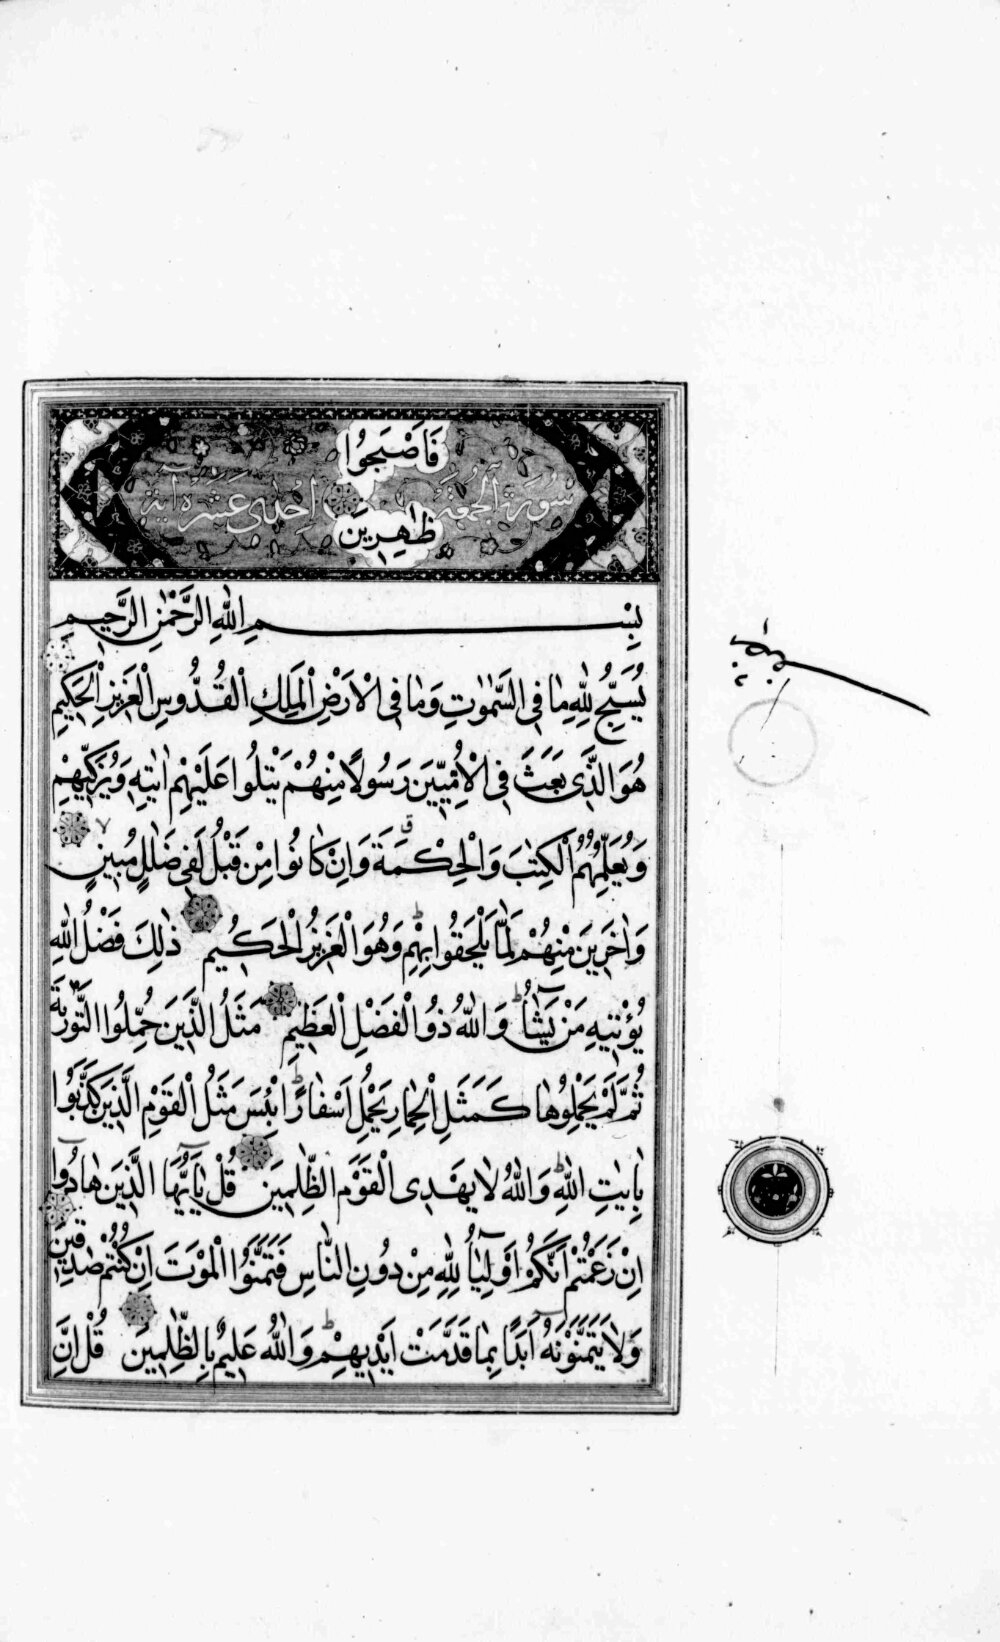 فَاَصْبَحُوا
سُورَةُ الْجُمُعَةِ اِحْدٰى عَشْرَةَ اٰيَة
ظٰهِرِينَ
بِسْمِ اللّٰهِ الرَّحْمٰنِ الرَّحِيمِ
يُسَبِّحُ لِلّٰهِ مَا فِى السَّمٰوٰتِ وَمَا فِى الْاَرْضِ الْمَلِكِ الْقُدُّوسِ الْعَزِيزِ الْحَكِيمِ
هُوَ الَّذِى بَعَثَ فِى الْاُمِّيِّينَ رَسُولًا مِنْهُمْ يَتْلُوا عَلَيْهِمْ اٰيٰتِهِ وَيُزَكِّيهِمْ
وَيُعَلِّمُهُمُ الْكِتٰبَ وَالْحِكْمَةَ وَاِنْ كَانُوا مِنْ قَبْلُ لَفِى ضَلٰلٍ مُبِينٍ
وَاٰخَرِينَ مِنْهُمْ لَمَّا يَلْحَقُوا بِهِمْ وَهُوَ الْعَزِيزُ الْحَكِيمُ ذٰلِكَ فَضْلُ اللّٰهِ
يُؤْتِيهِ مَنْ يَشَاۤءُ وَاللّٰهُ ذُو الْفَضْلِ الْعَظِيمِ مَثَلُ الَّذِينَ حُمِّلُوا التَّوْرٰيةَ
ثُمَّ لَمْ يَحْمِلُوهَا كَمَثَلِ الْحِمَارِ يَحْمِلُ اَسْفَارًا بِئْسَ مَثَلُ الْقَوْمِ الَّذِينَ كَذَّبُوا
بِاٰيٰتِ اللّٰهِ وَاللّٰهُ لَا يَهْدِى الْقَوْمَ الظّٰلِمِينَ قُلْ يَاۤ اَيُّهَا الَّذِينَ هَادُوۤا
اِنْ زَعَمْتُمْ اَنَّكُمْ اَوْلِيَاۤءُ لِلّٰهِ مِنْ دُونِ النَّاسِ فَتَمَنَّوُا الْمَوْتَ اِنْ كُنْتُمْ صٰدِقِينَ
وَلَا يَتَمَنَّوْنَهُۤ اَبَدًا بِمَا قَدَّمَتْ اَيْدِيهِمْ وَاللّٰهُ عَلِيمٌ بِالظّٰلِمِينَ قُلْ اِنَّ